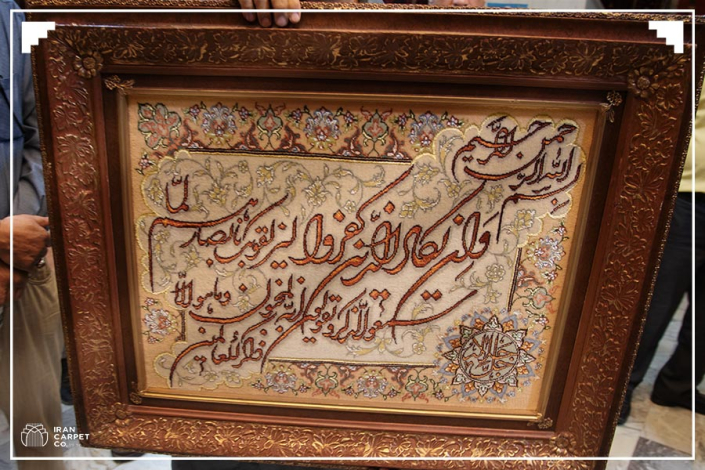 بسم الله الرحمن الرحیم
وان یکاد الذین کفروا لیزلقونک بابصارهم لما
سمعوا الذکر و یقولون انه لمجنون وما هو الا
ذکر للعالمین
IRAN
CARPET
CO.